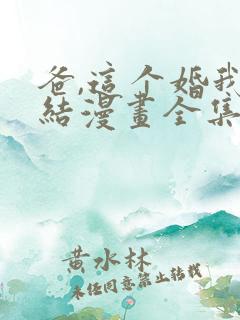 爸,這个婚我
結漫畫全集
黄水林
未经同意禁止转载